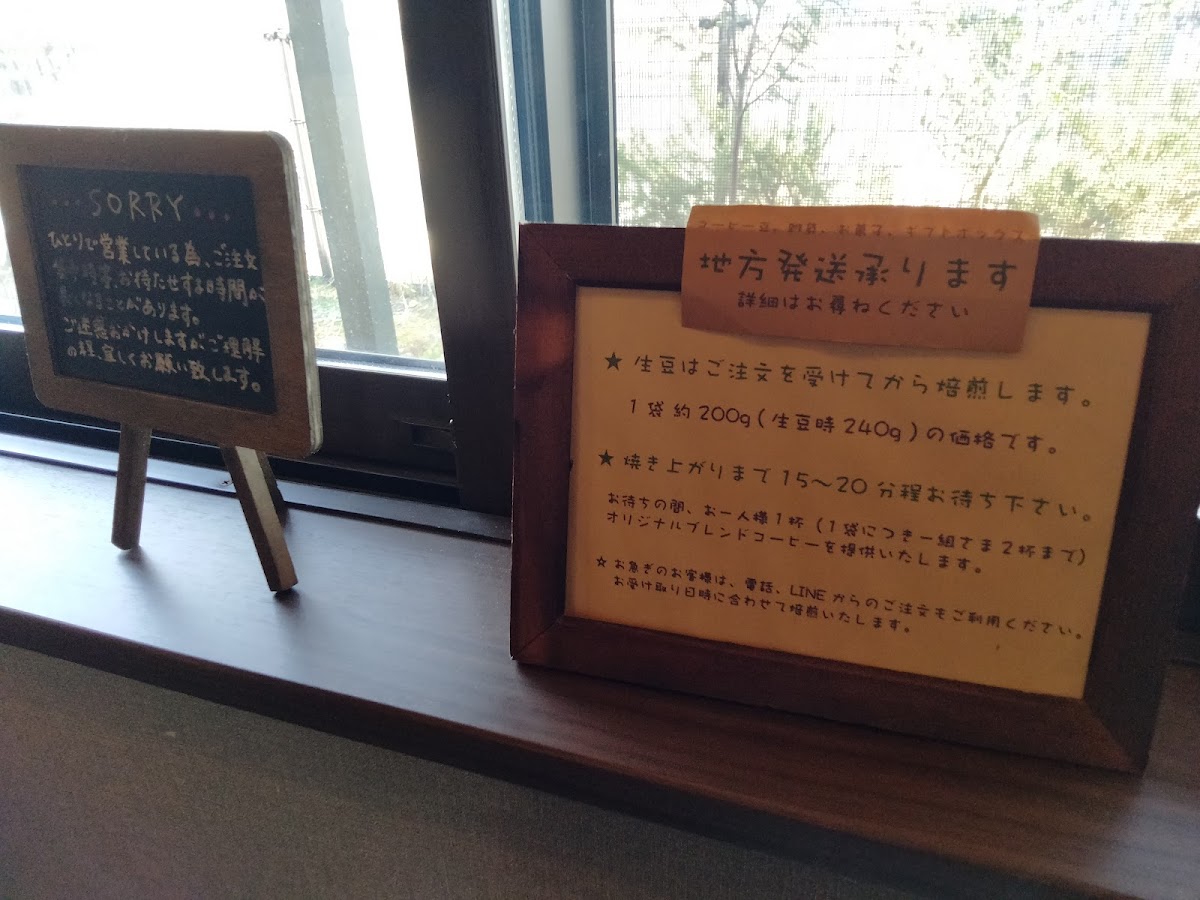 ・・・SORRY・・・
ひとりで営業している為、ご注文
お待たせする時間が
長くなることがあります。
ご迷惑おかけしますがご理解
の程、宜しくお願い致します。
コーヒー豆、雑貨、お菓子、ギフトボックス
地方発送承ります
詳細はお尋ねください
★ 生豆はご注文を受けてから焙煎します。
1袋 約200g(生豆時240g)の価格です。
★ 焼き上がりまで 15～20 分程お待ち下さい。
お待ちの間、お一人様1杯(1袋につき一組さま2杯まで)
オリジナルブレンドコーヒーを提供いたします。
☆ お急ぎのお客様は、電話、LINEからのご注文もご利用ください。
お受け取り日時に合わせて焙煎いたします。